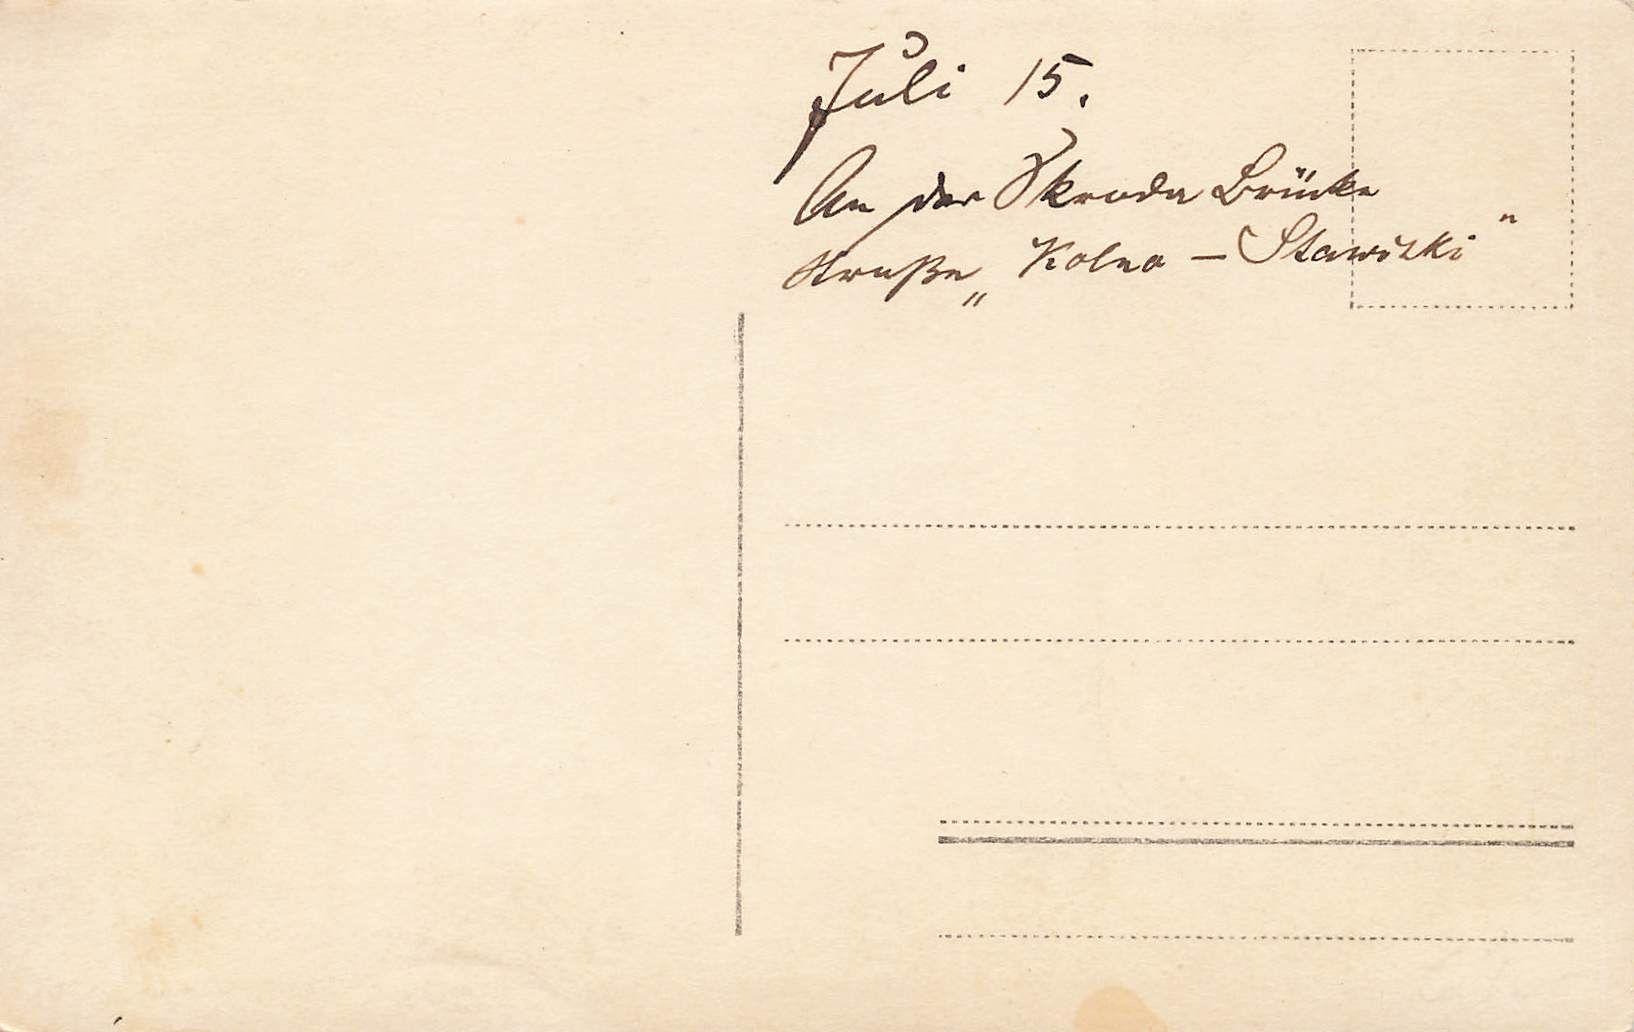 Juli 15.
An der Skroda Brücke
Straße „Kolno – Stawiski"